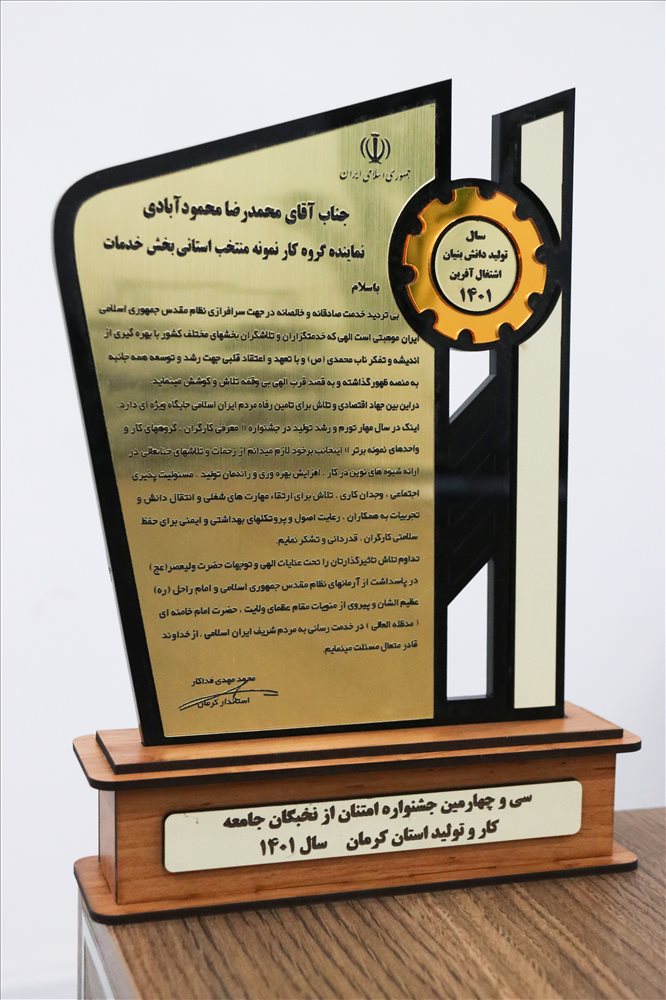 جمهوری اسلامی ایران
جناب آقای محمدرضا محمودآبادی
نماینده گروه کار نمونه منتخب استانی بخش خدمات
باسلام
بی تردید خدمت صادقانه و خالصانه در جهت سرافرازی نظام مقدس جمهوری اسلامی
ایران موهبتی است الهی که خدمتگزاران و تلاشگران بخشهای مختلف کشور با بهره گیری از
اندیشه و تفکر ناب محمدی (ص) و با تعهد و اعتقاد قلبی جهت رشد و توسعه همه جانبه
به منصه ظهور گذاشته و به قصد قرب الهی بی وقفه تلاش و کوشش مینماید.
دراین بین جهاد اقتصادی و تلاش برای تامین رفاه مردم ایران اسلامی جایگاه ویژه ای دارد.
اینک در سال مهار تورم و رشد تولید در جشنواره " معرفی کارگران ، گروههای کار و
واحدهای نمونه برتر " اینجانب برخود لازم میدانم از زحمات و تلاشهای جنابعالی در
ارائه شیوه های نوین در کار ، افزایش بهره وری و راندمان تولید ، مسئولیت پذیری
اجتماعی ، وجدان کاری ، تلاش برای ارتقاء مهارت های شغلی و انتقال دانش و
تجربیات به همکاران ، رعایت اصول و پروتکلهای بهداشتی و ایمنی برای حفظ
سلامتی کارگران ، قدردانی و تشکر نمایم.
تداوم تلاش تاثیرگذارتان را تحت عنایات الهی و توجهات حضرت ولیعصر(عج)
در پاسداشت از آرمانهای نظام مقدس جمهوری اسلامی و امام راحل (ره)
عظیم الشان و پیروی از منویات مقام عظمای ولایت ، حضرت امام خامنه ای
( مدظله العالی ) در خدمت رسانی به مردم شریف ایران اسلامی ، از خداوند
قادر متعال مسئلت مینمایم.
محمد مهدی فداکار
استاندار کرمان
سال
تولید دانش بنیان
اشتغال آفرین
۱۴۰۱
سی و چهارمین جشنواره امتنان از نخبگان جامعه
کار و تولید استان کرمان سال ۱۴۰۱